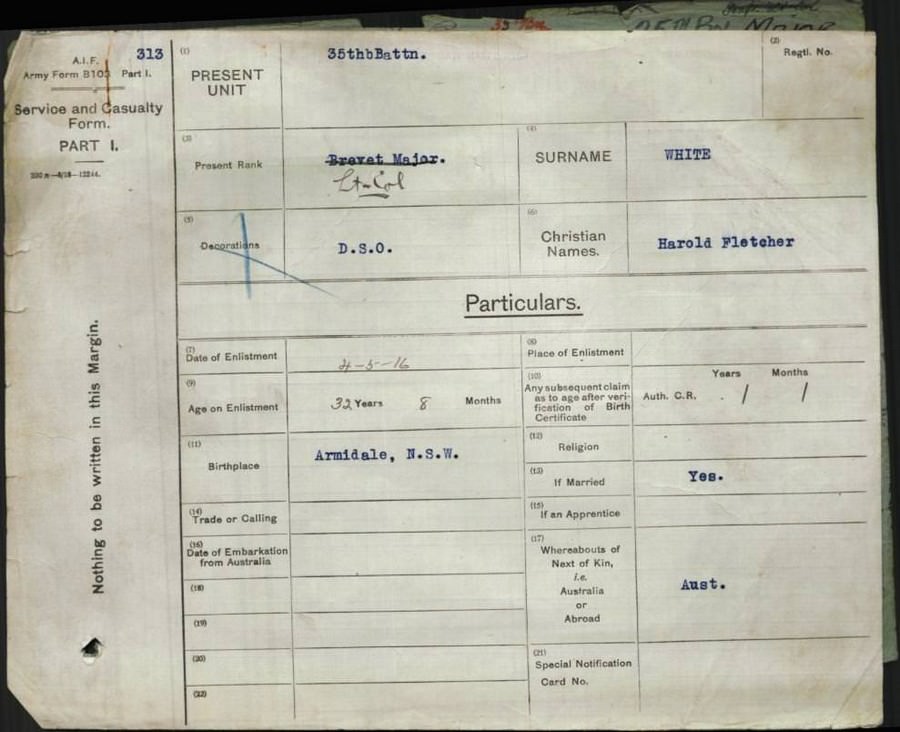 A.I.F. 313
Army Form B103 Part I.
Service and Casualty
Form.
PART I.
Nothing to be written in this Margin.
(1) PRESENT UNIT 35thbBattn.
(2) Regtl. No.
(3) Present Rank Brevet Major.
Lt-Col
(4) SURNAME WHITE
(5) Decorations D.S.O.
(6) Christian Names. Harold Fletcher
Particulars.
(7) Date of Enlistment 4-5-16
(8) Place of Enlistment
(9) Age on Enlistment 32 Years 8 Months
(10) Any subsequent claim
as to age after veri-
fication of Birth
Certificate
Years Months
Auth. C.R. . / /
(11) Birthplace Armidale, N.S.W.
(12) Religion
(13) If Married Yes.
(14) Trade or Calling
(15) If an Apprentice
(16) Date of Embarkation
from Australia
(17) Whereabouts of
Next of Kin,
i.e.
Australia
or
Abroad
Aust.
(18)
(19)
(20)
(21) Special Notification
Card No.
(22)